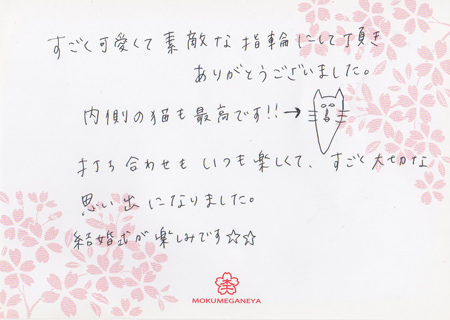 すごく可愛くて素敵な指輪にして頂き
ありがとうございました。
内側の猫も最高です!!→
打ち合わせもいつも楽しくて、すごく大せつな
思い出になりました。
結婚式が楽しみです☆☆
MOKUMEGANEYA